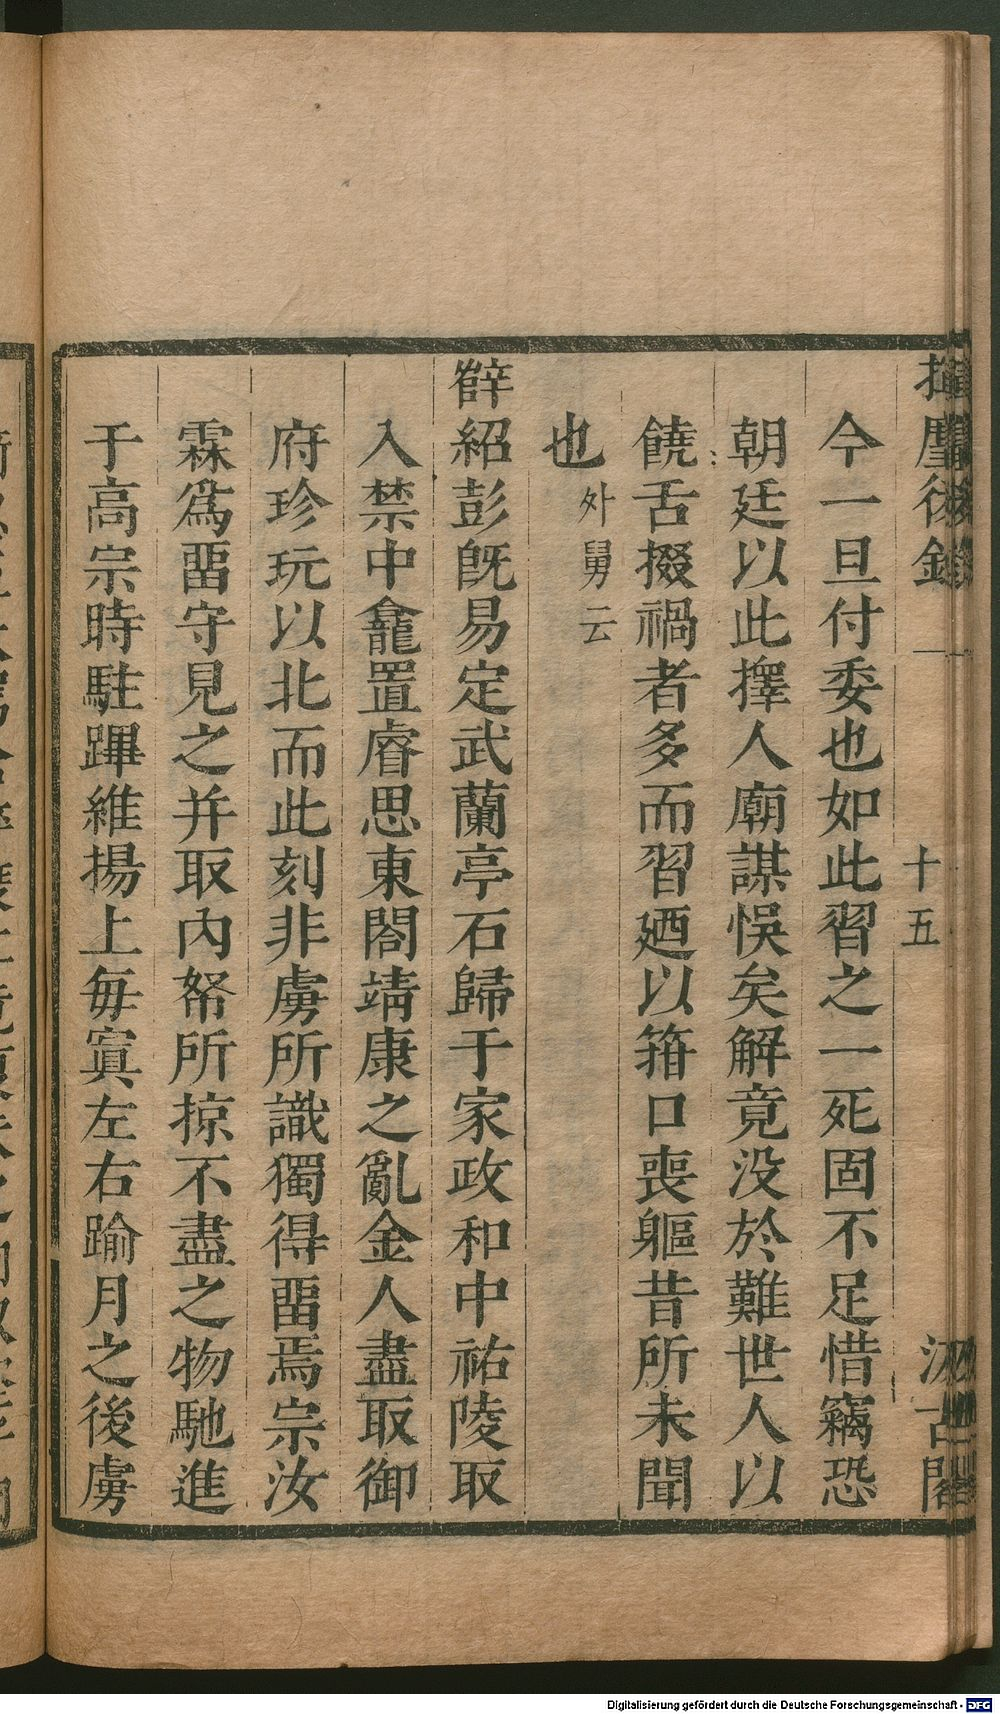 揮麈後錄
十五
汲古閣
今一旦付委也如此習之一死固不足惜竊恐
朝廷以此擇人廟謀悞矣解竟没於難世人以
饒舌掇禍者多而習廼以箝口喪軀昔所未聞
也外舅云
薛紹彭旣易定武蘭亭石歸于家政和中祐陵取
入禁中龕置睿思東閤靖康之亂金人盡取御
府珍玩以北而此刻非虜所識獨得畱焉宗汝
霖爲畱守見之并取內帑所掠不盡之物馳進
于高宗時駐蹕維揚上每寘左右踰月之後虜
Digitalisierung gefördert durch die Deutsche Forschungsgemeinschaft - DFG